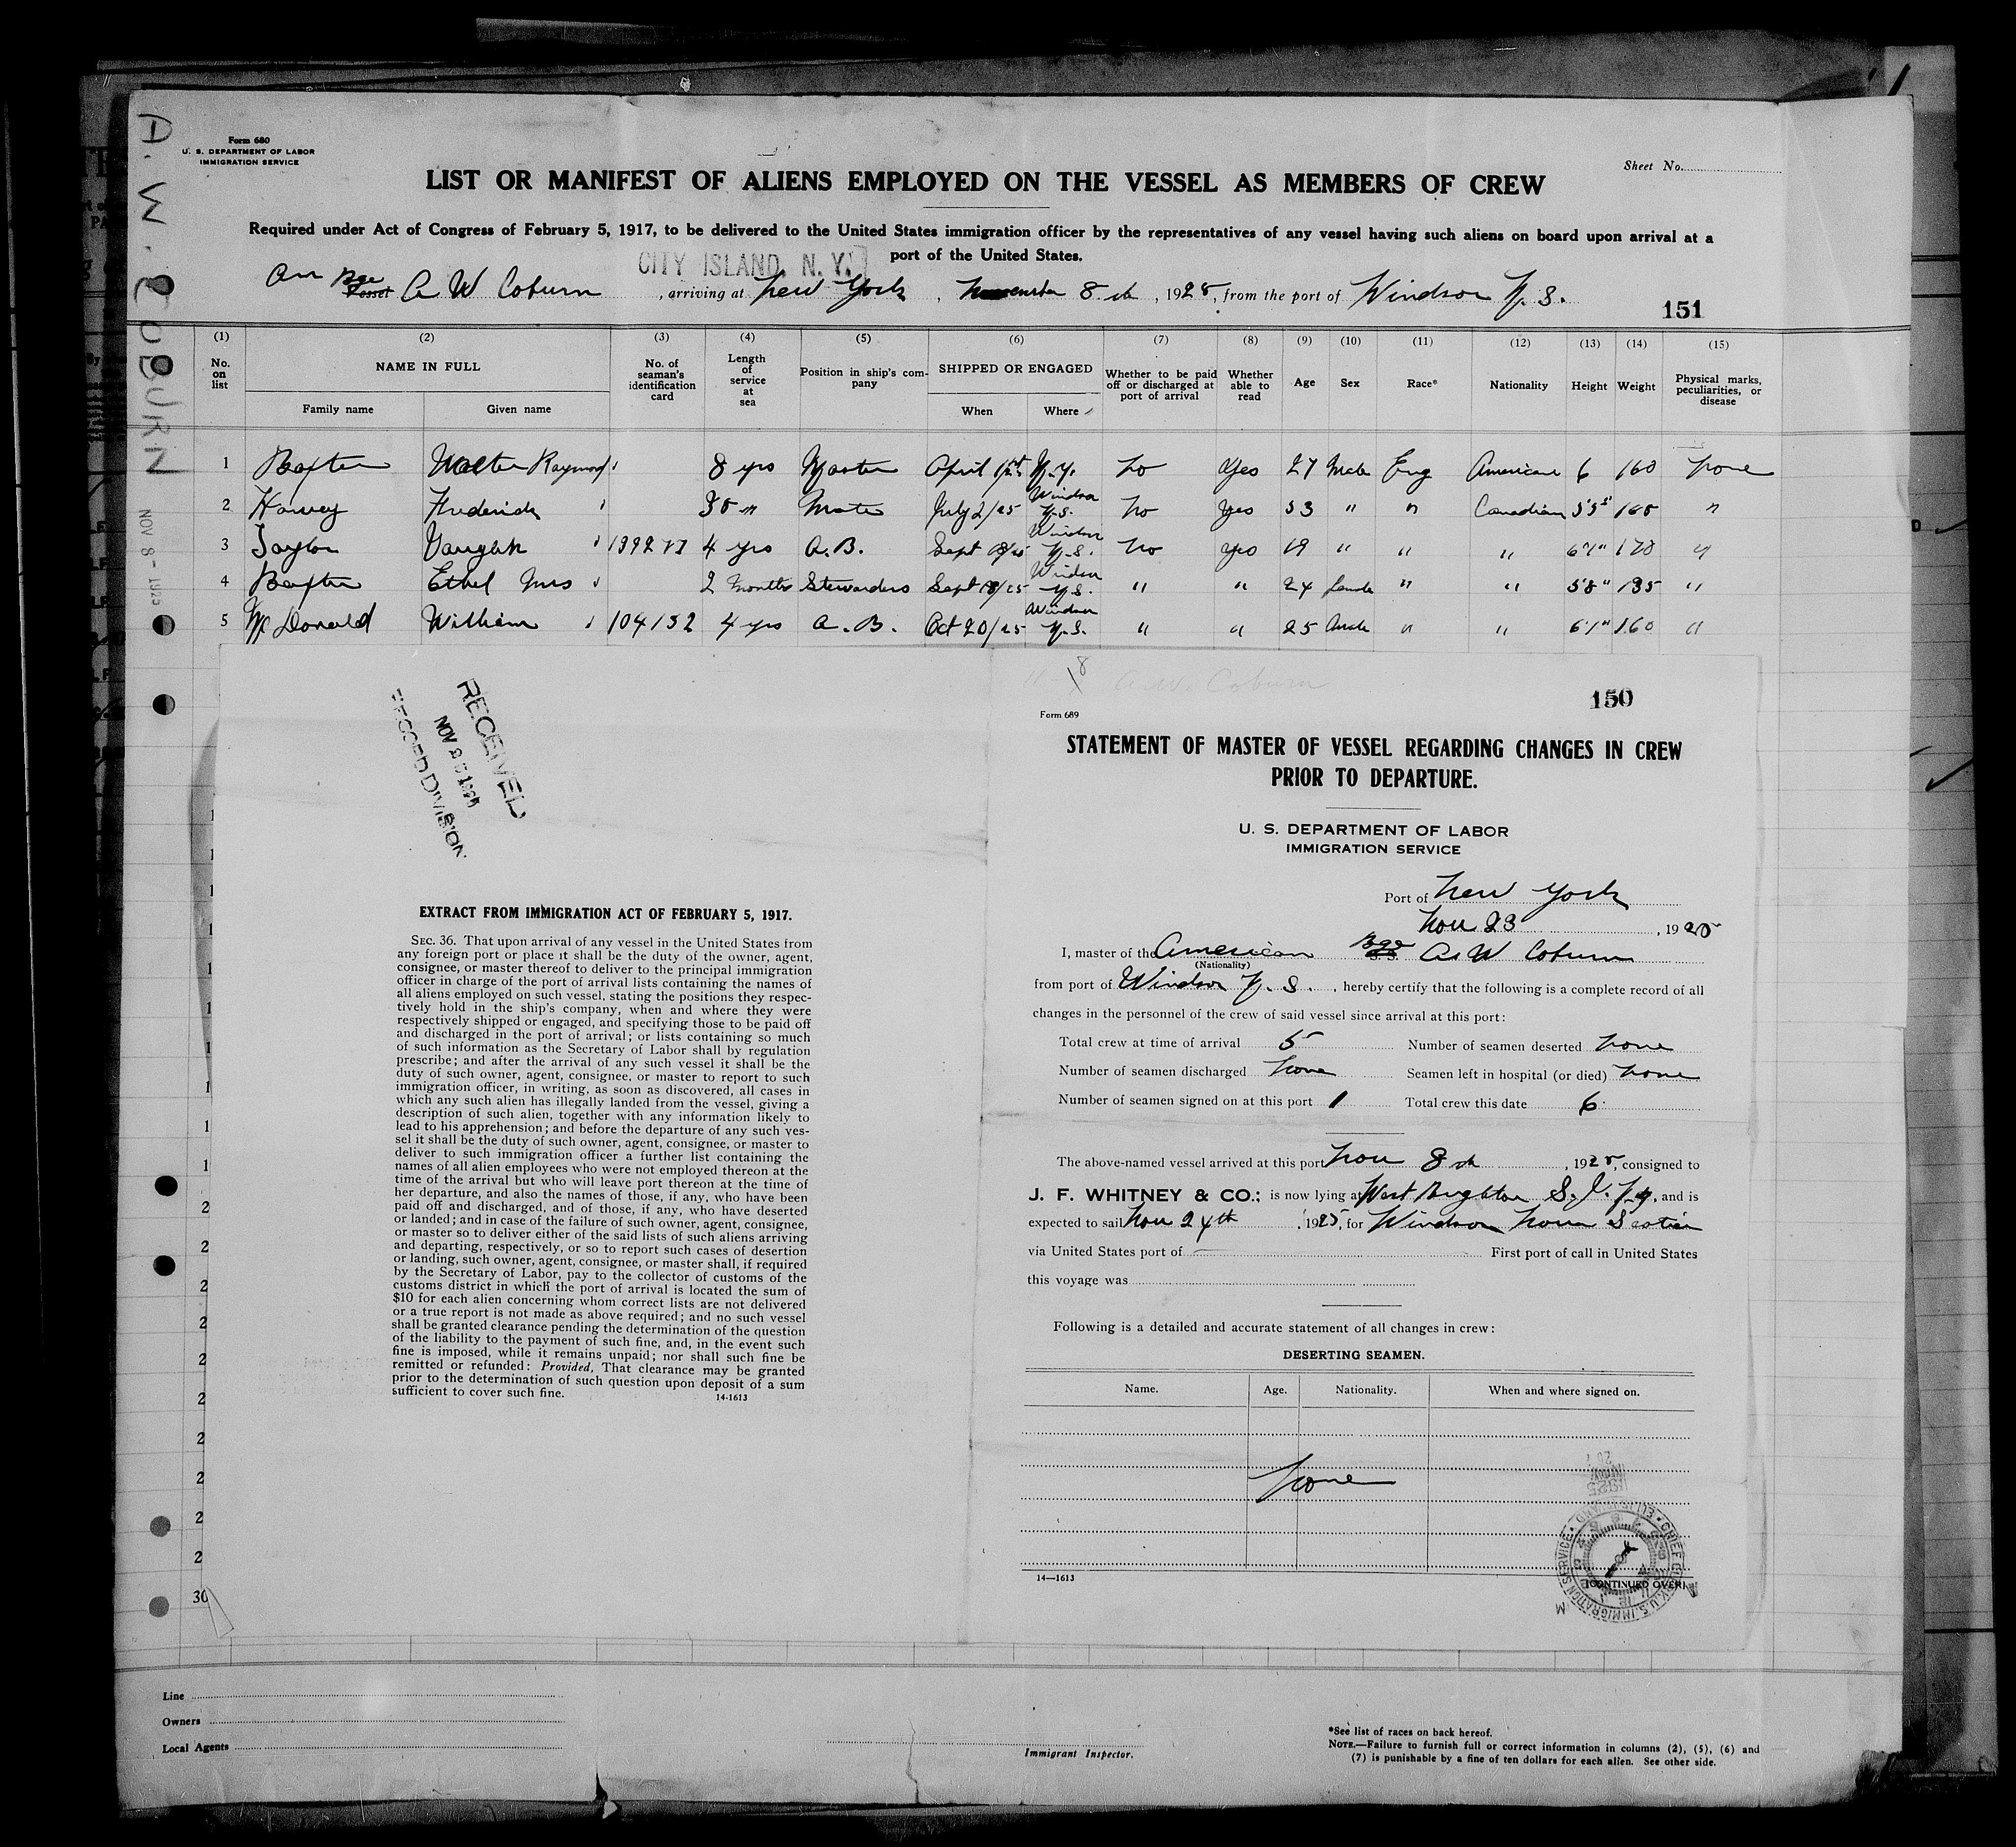 A. W. COBURN
NOV 8 - 1925
Form 680
U. S. DEPARTMENT OF LABOR
IMMIGRATION SERVICE
Sheet No.
LIST OR MANIFEST OF ALIENS EMPLOYED ON THE VESSEL AS MEMBERS OF CREW
Required under Act of Congress of February 5, 1917, to be delivered to the United States immigration officer by the representatives of any vessel having such aliens on board upon arrival at a
port of the United States.
CITY ISLAND, N. Y.
Am Bge Vessel A W Coburn, arriving at New York, November 8th, 1925, from the port of Windsor N. S.
151
(1) (2) (3) (4) (5) (6) (7) (8) (9) (10) (11) (12) (13) (14) (15)
No. on list NAME IN FULL No. of seaman's identification card Length of service at sea Position in ship's company SHIPPED OR ENGAGED Whether to be paid off or discharged at port of arrival Whether able to read Age Sex Race* Nationality Height Weight Physical marks, peculiarities, or disease
Family name Given name When Where
1 Baxter Walter Raymond 8 yrs Master April 1st N.Y. No Yes 27 Male Eng American 6 160 None
2 Harvey Frederick 30 " Mate July 2/25 Windsor N.S. No Yes 53 " " Canadian 5'5" 165 "
3 Taylor Vaughn 4 yrs A.B. Sept Windsor N.S. No Yes 19 " " " 6'1" 170 "
4 Baxter Ethel Mrs 2 Months Stewardess Sept 18/25 Windsor N.S. " " 24 female " " 5'8" 135 "
5 McDonald William 104132 4 yrs A.B. Oct 20/25 Windsor N.S. " " 25 Male " " 6'1" 160 "
30
RECEIVED
NOV 25 1925
RECORD DIVISION
EXTRACT FROM IMMIGRATION ACT OF FEBRUARY 5, 1917.
SEC. 36. That upon arrival of any vessel in the United States from
any foreign port or place it shall be the duty of the owner, agent,
consignee, or master thereof to deliver to the principal immigration
officer in charge of the port of arrival lists containing the names of
all aliens employed on such vessel, stating the positions they respec-
tively hold in the ship's company, when and where they were
respectively shipped or engaged, and specifying those to be paid off
and discharged in the port of arrival; or lists containing so much
of such information as the Secretary of Labor shall by regulation
prescribe; and after the arrival of any such vessel it shall be the
duty of such owner, agent, consignee, or master to report to such
immigration officer, in writing, as soon as discovered, all cases in
which any such alien has illegally landed from the vessel, giving a
description of such alien, together with any information likely to
lead to his apprehension; and before the departure of any such ves-
sel it shall be the duty of such owner, agent, consignee, or master to
deliver to such immigration officer a further list containing the
names of all alien employees who were not employed thereon at the
time of the arrival but who will leave port thereon at the time of
her departure, and also the names of those, if any, who have been
paid off and discharged, and of those, if any, who have deserted
or landed; and in case of the failure of such owner, agent, consignee,
or master so to deliver either of the said lists of such aliens arriving
and departing, respectively, or so to report such cases of desertion
or landing, such owner, agent, consignee, or master shall, if required
by the Secretary of Labor, pay to the collector of customs of the
customs district in which the port of arrival is located the sum of
$10 for each alien concerning whom correct lists are not delivered
or a true report is not made as above required; and no such vessel
shall be granted clearance pending the determination of the question
of the liability to the payment of such fine, and, in the event such
fine is imposed, while it remains unpaid; nor shall such fine be
remitted or refunded: Provided, That clearance may be granted
prior to the determination of such question upon deposit of a sum
sufficient to cover such fine.
14-1613
A. W. Coburn
150
Form 689
STATEMENT OF MASTER OF VESSEL REGARDING CHANGES IN CREW
PRIOR TO DEPARTURE.
U. S. DEPARTMENT OF LABOR
IMMIGRATION SERVICE
Port of New York
Nov 23, 1925
I, master of the American Bge S.S. A. W Coburn
(Nationality)
from port of Windsor N. S., hereby certify that the following is a complete record of all
changes in the personnel of the crew of said vessel since arrival at this port:
Total crew at time of arrival 5 Number of seamen deserted None
Number of seamen discharged None Seamen left in hospital (or died) None
Number of seamen signed on at this port 1 Total crew this date 6
The above-named vessel arrived at this port Nov 8th, 1925, consigned to
J. F. WHITNEY & CO.; is now lying at West Brighton S. I. N. Y. and is
expected to sail Nov 24th, 1925, for Windsor Nova Scotia
via United States port of First port of call in United States
this voyage was
Following is a detailed and accurate statement of all changes in crew:
DESERTING SEAMEN.
Name. Age. Nationality. When and where signed on.
None
1925
CHIEF CLERK U. S. IMMIGRATION SERVICE ELLIS ISLAND
14—1613
(CONTINUED OVER)
Line
Owners
Local Agents
Immigrant Inspector.
*See list of races on back hereof.
NOTE.—Failure to furnish full or correct information in columns (2), (5), (6) and
(7) is punishable by a fine of ten dollars for each alien. See other side.